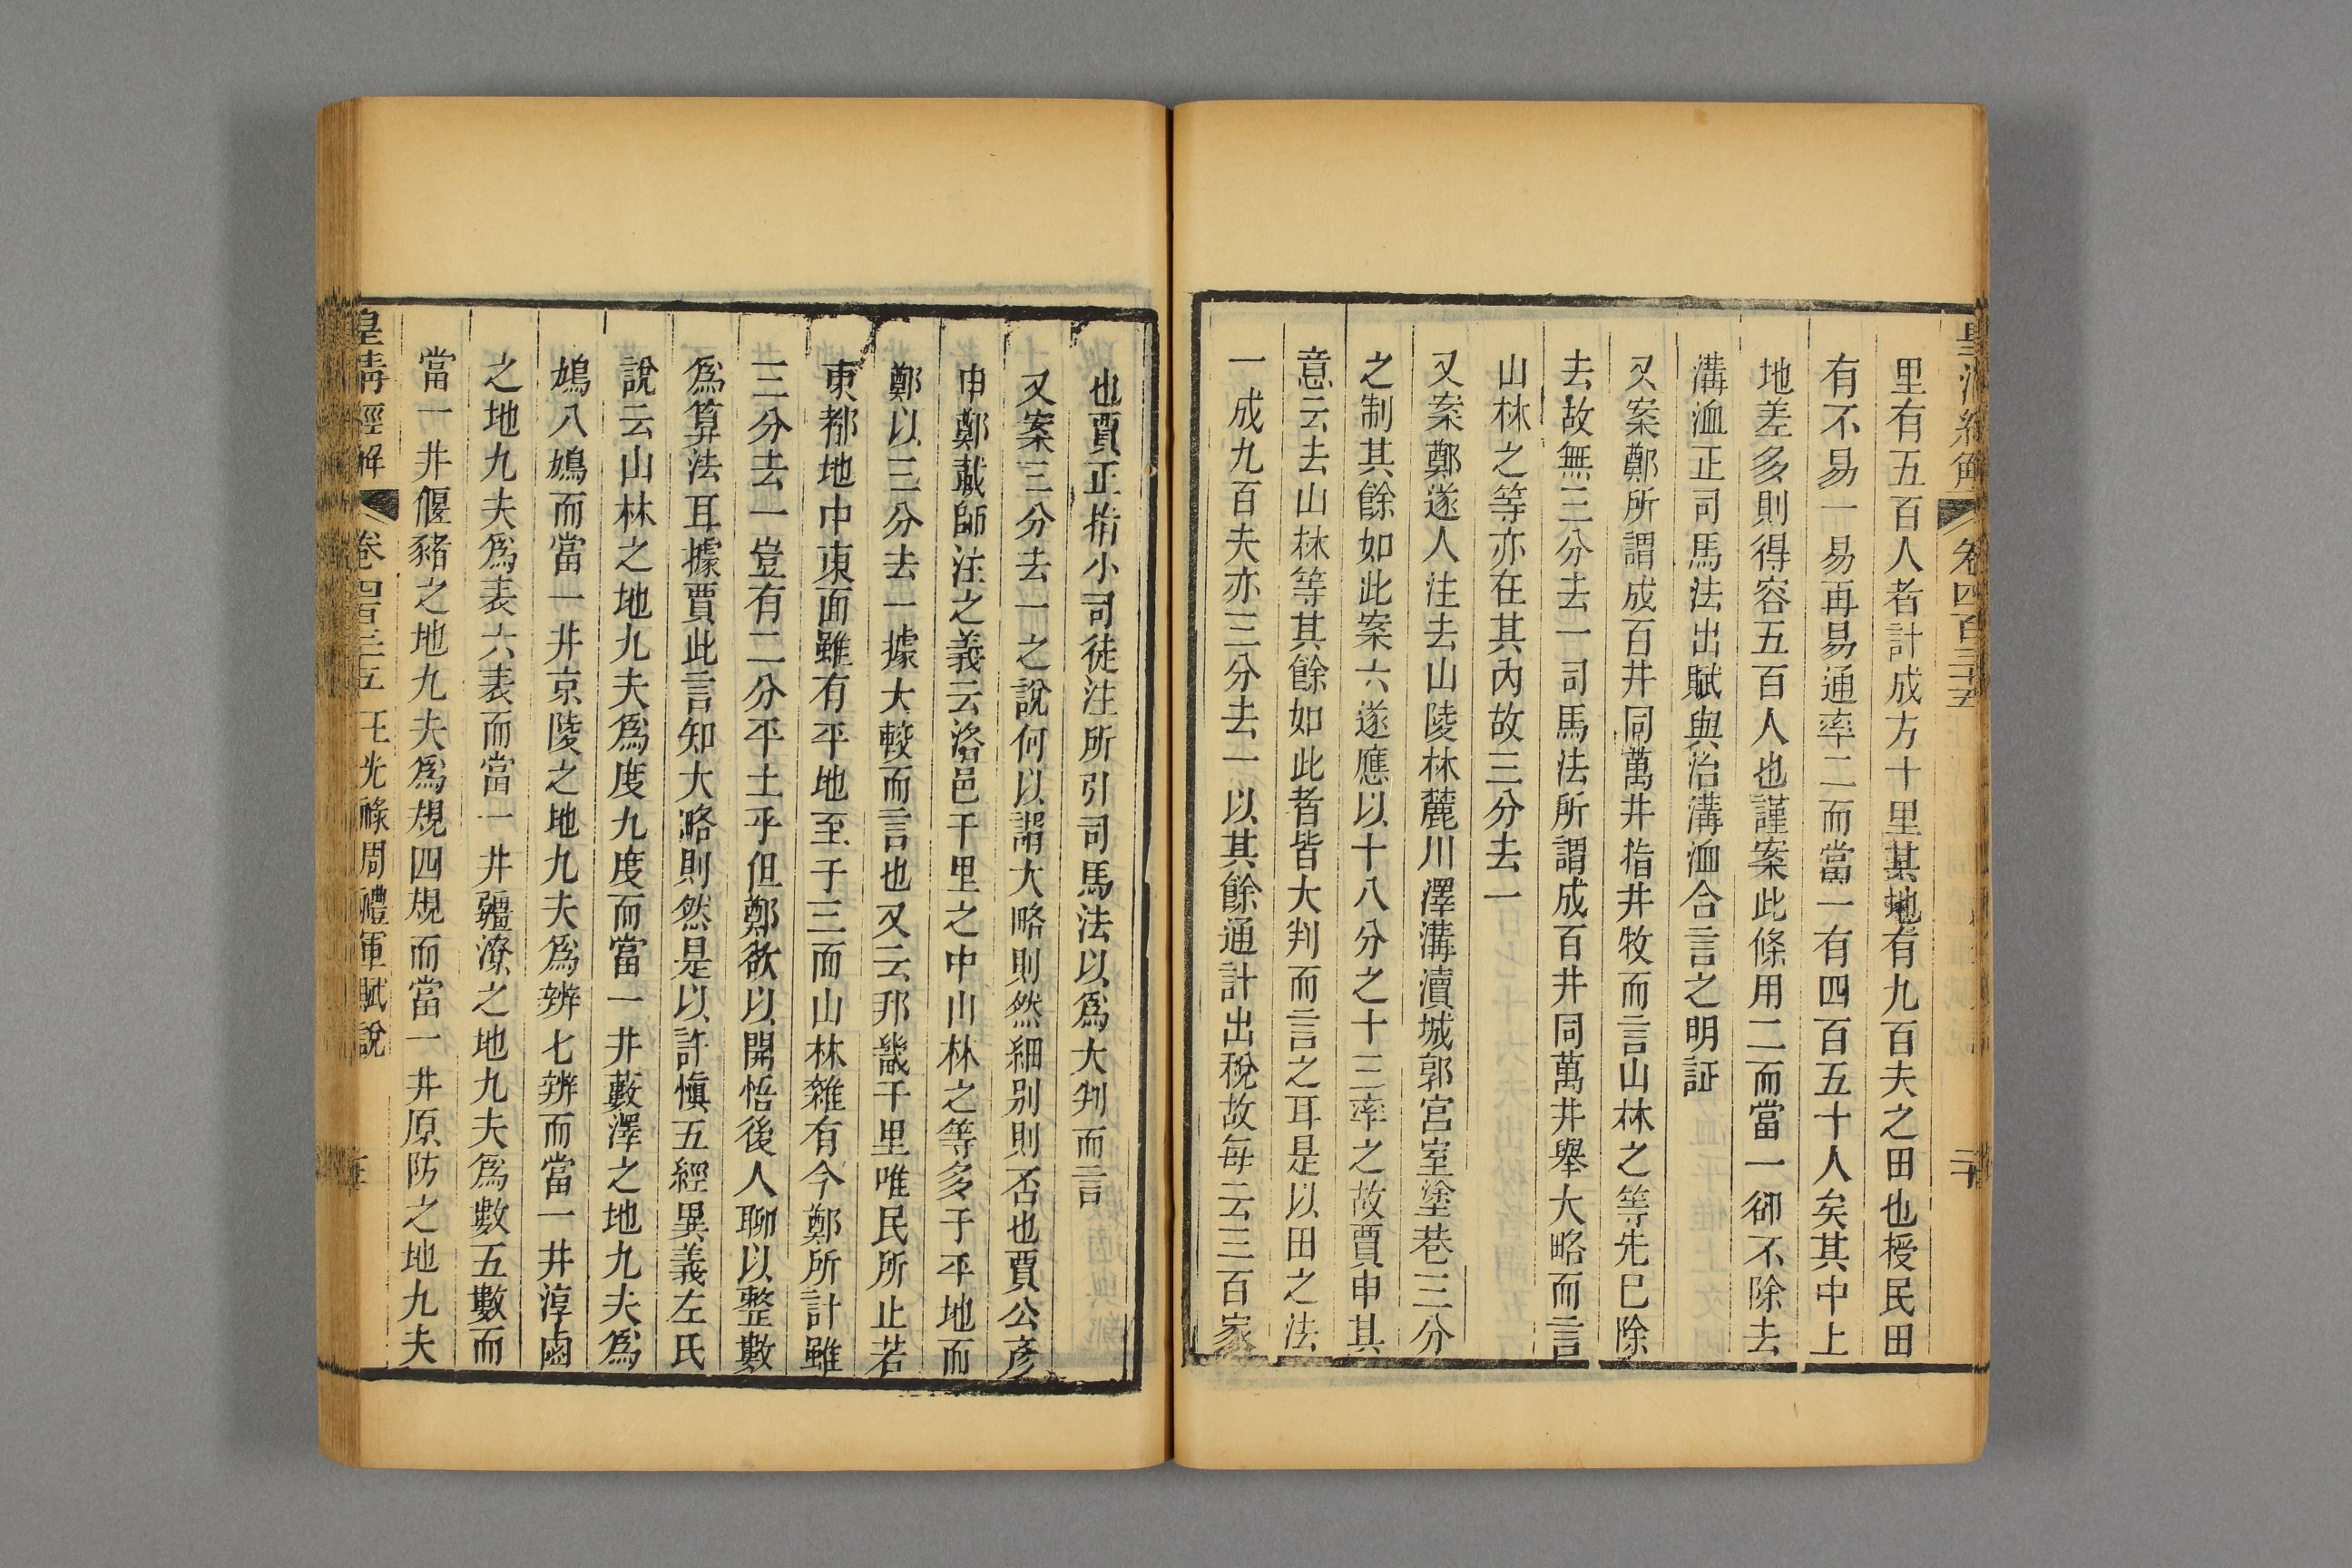 里有五百人者計成方十里其地有九百夫之田也授民田
有不易一易再易通率二而當一有四百五十人矣其中上
地差多則得容五百人也謹案此條用二而當一卻不除去
溝洫正司馬法出賦與治溝洫合言之明証
又案鄭所謂成百井同萬井指井牧而言山林之等先已除
去故無三分去一司馬法所謂成百井同萬井舉大略而言
山林之等亦在其內故三分去一
又案鄭遂人注去山陵林麓川澤溝瀆城郭宮室塗巷三分
之制其餘如此案六遂應以十八分之十三率之故賈申其
意云去山林等其餘如此者皆大判而言之耳是以田之法
一成九百夫亦三分去一以其餘通計出稅故每云三百家
也賈正指小司徒注所引司馬法以爲大判而言
又案三分去一之說何以謂大略則然細别則否也賈公彥
申鄭載師注之義云洛邑千里之中山林之等多于平地而
鄭以三分去一據大較而言也又云邦畿千里唯民所止若
東都地中東面雖有平地至于三而山林雜有今鄭所計雖
三分去一豈有二分平土乎但鄭欲以開悟後人聊以整數
爲算法耳據賈此言知大略則然是以許愼五經異義左氏
說云山林之地九夫爲度九度而當一井藪澤之地九夫爲
鳩八鳩而當一井京陵之地九夫爲辨七辨而當一井淳鹵
之地九夫爲表六表而當一井疆潦之地九夫爲數五數而
當一井偃豬之地九夫爲規四規而當一井原防之地九夫
皇清經解 卷四百三十五 王光祿周禮軍賦說